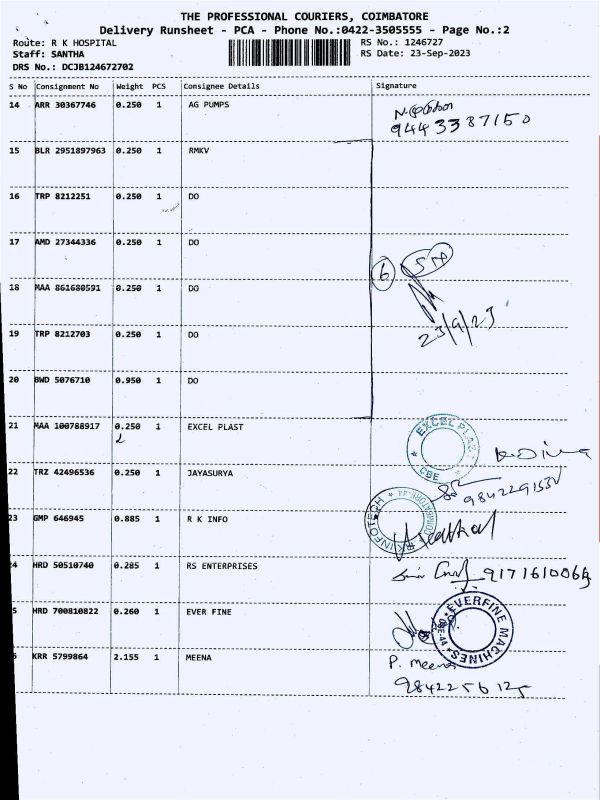 THE PROFESSIONAL COURIERS, COIMBATORE
Delivery Runsheet - PCA - Phone No.:0422-3505555 - Page No.:2
Route: R K HOSPITAL RS No.: 1246727
Staff: SANTHA RS Date: 23-Sep-2023
DRS No.: DCJB124672702
S No Consignment No Weight PCS Consignee Details Signature
14 ARR 30367746 0.250 1 AG PUMPS
9443387150
15 BLR 2951897963 0.250 1 RMKV
16 TRP 8212251 0.250 1 DO
17 AMD 27344336 0.250 1 DO
6
18 MAA 861680591 0.250 1 DO
23/9/23
19 TRP 8212703 0.250 1 DO
20 BWD 5076710 0.950 1 DO
21 MAA 100788917 0.250 1 EXCEL PLAST
EXCEL PLAST CBE
22 TRZ 42496536 0.250 1 JAYASURYA
23 GMP 646945 0.885 1 R K INFO
K INFOTECH COIMBATORE-44
24 HRD 50510740 0.285 1 RS ENTERPRISES
5 HRD 700810822 0.260 1 EVER FINE
EVERFINE MACHINES CBE-44
KRR 5799864 2.155 1 MEENA P. Meena
9842256125